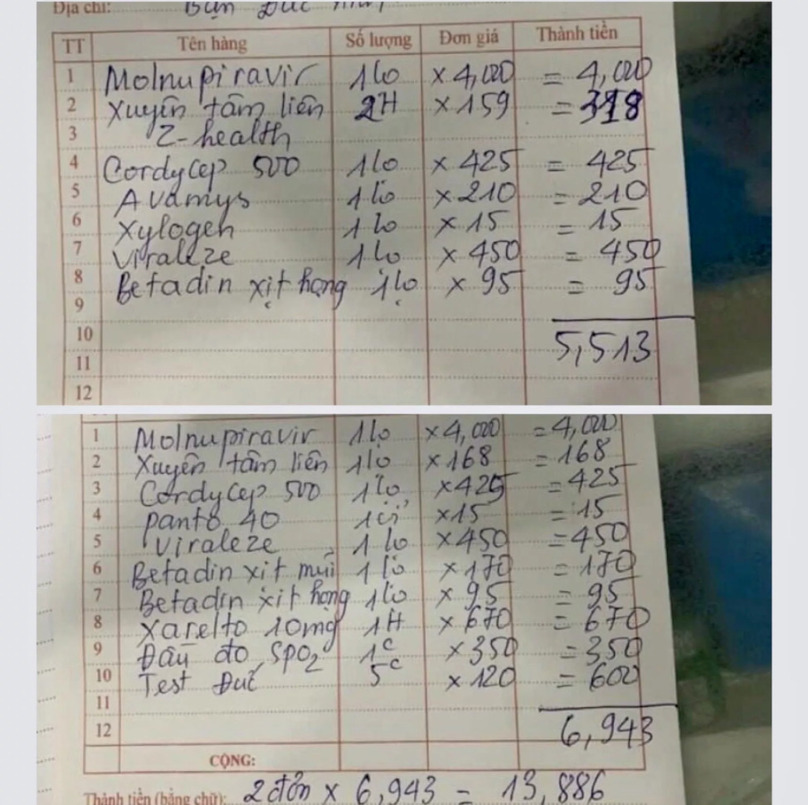 Địa chỉ:
TT Tên hàng Số lượng Đơn giá Thành tiền
1 Molnupiravir 1lọ × 4,000 = 4,000
2 Xuyên tâm liên 2H × 159 = 318
3 Z-health
4 Cordycep 500 1lọ × 425 = 425
5 Avamys 1lọ × 210 = 210
6 Xylogen 1lọ × 15 = 15
7 Viraleze 1lọ × 450 = 450
8 Betadin xịt họng 1lọ × 95 = 95
9
10 5,513
11
12
1 Molnupiravir 1lọ × 4,000 = 4,000
2 Xuyên tâm liên 1lọ × 168 = 168
3 Cordycep 500 1lọ × 425 = 425
4 panto 40 × 15 = 15
5 Viraleze 1lọ × 450 = 450
6 Betadin xịt mũi 1lọ × 170 = 170
7 Betadin xịt họng 1lọ × 95 = 95
8 Xarelto 10mg 1H × 670 = 670
9 Đầu đo SPO2 1c × 350 = 350
10 Test Đức 5c × 120 = 600
11
12 6,943
CỘNG:
Thành tiền (bằng chữ): 2 đơn × 6,943 = 13,886